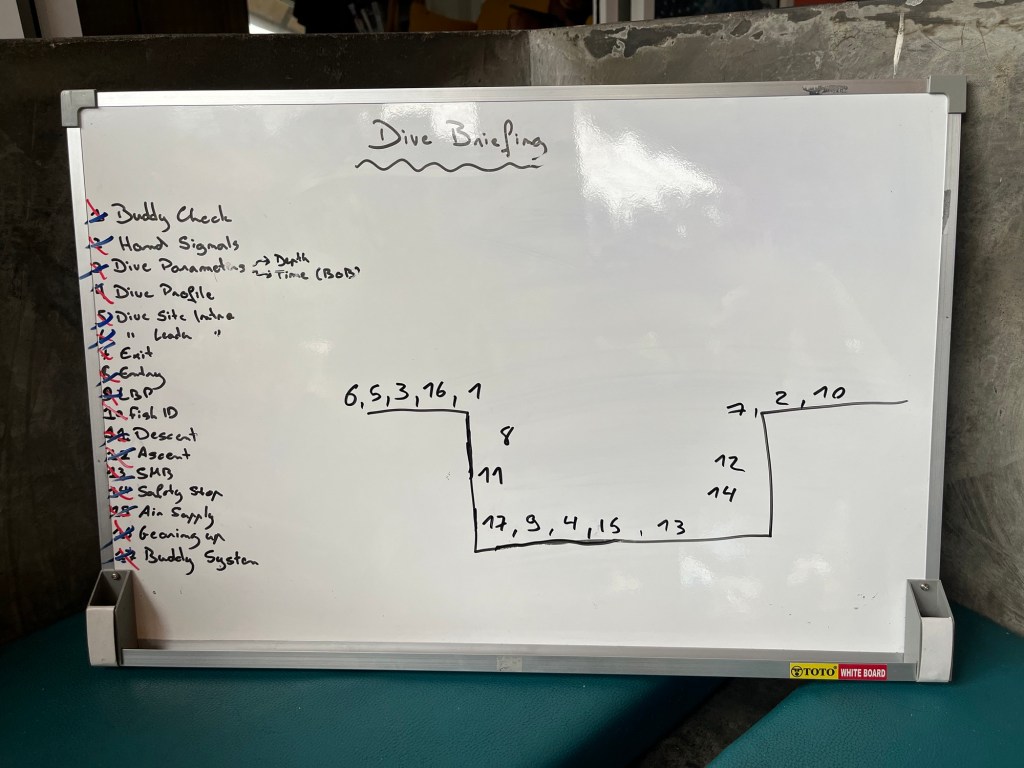 Dive Briefing
1 Buddy Check
2 Hand Signals
3 Dive Parameters → Depth
→ Time (BoB)
4 Dive Profile
5 Dive Site Intro
6 " Leader "
7 Exit
8 Entry
9 LBP
10 Fish ID
11 Descent
12 Ascent
13 SMB
14 Safety Stop
15 Air Supply
16 Gearing up
17 Buddy System
6, 5, 3, 16, 1
8
11
17, 9, 4, 15, 13
7, 2, 10
12
14
TOTO WHITE BOARD